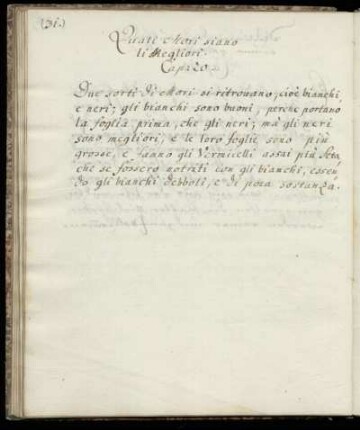 (31.)
Quali Mori siano
li Megliori.
Cap: 20.
Due sorti di Mori si ritrovano, cioè bianchi,
e neri; gli bianchi sono buoni, perche portano
la foglia prima, che gli neri; mà gli neri
sono megliori, e le loro foglie sono più
grosse, e fanno gli Vermicelli assai più Seta,
che se fossero notriti con gli bianchi, essen
do gli bianchi debboli, e di poca sostanza.